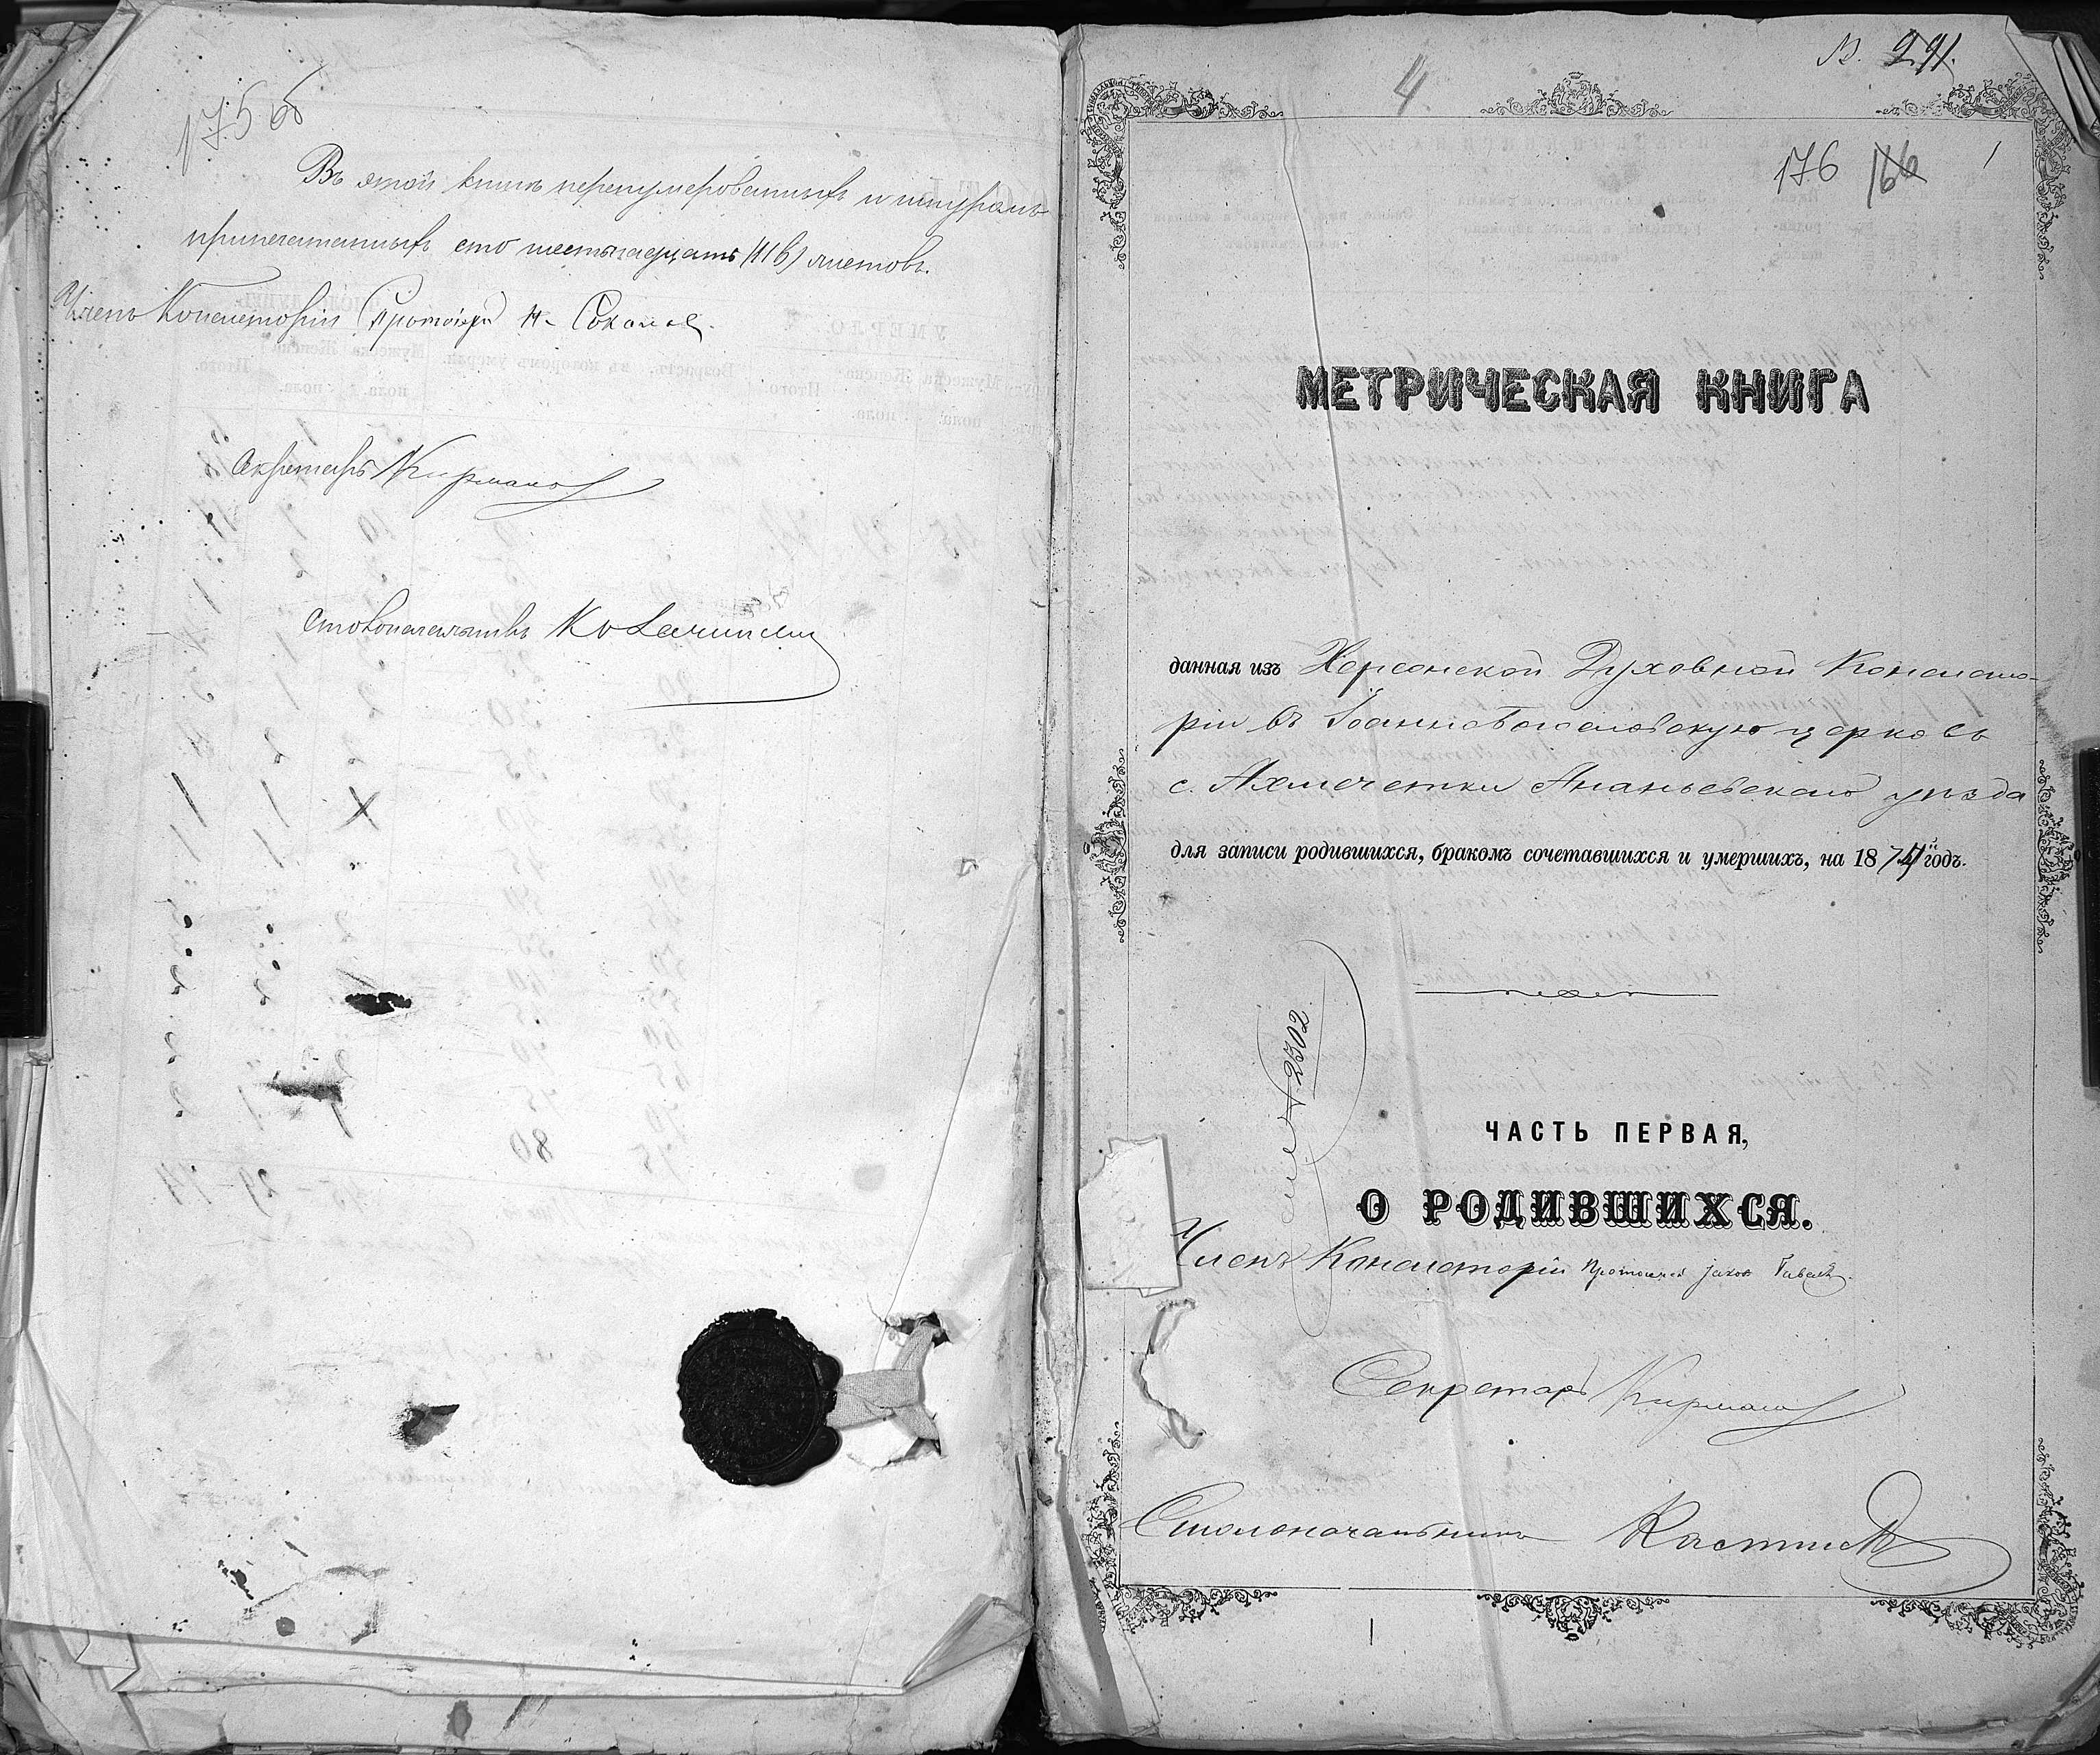 175 об
Въ этой книгѣ перенумерованныхъ и шнуромъ
припечатанныхъ сто шестьнадцать (116) листовъ.
Членъ Консисторіи Протоіерей Н. Соколов
Секретарь Кирманов
Столоначальникъ
4
В. 291.
176 166 1
МЕТРИЧЕСКАЯ КНИГА
данная изъ Херсонской Духовной Консисто-
ріи въ Іоанно Богословскую церковь
с. Ахмечетки Ананьевскаго уѣзда
для записи родившихся, бракомъ сочетавшихся и умершихъ, на 187 годъ.
№ 2302
ЧАСТЬ ПЕРВАЯ,
О РОДИВШИХСЯ.
Членъ Консисторіи Протоіерей
Секретарь Кирманов
Столоначальникъ
1